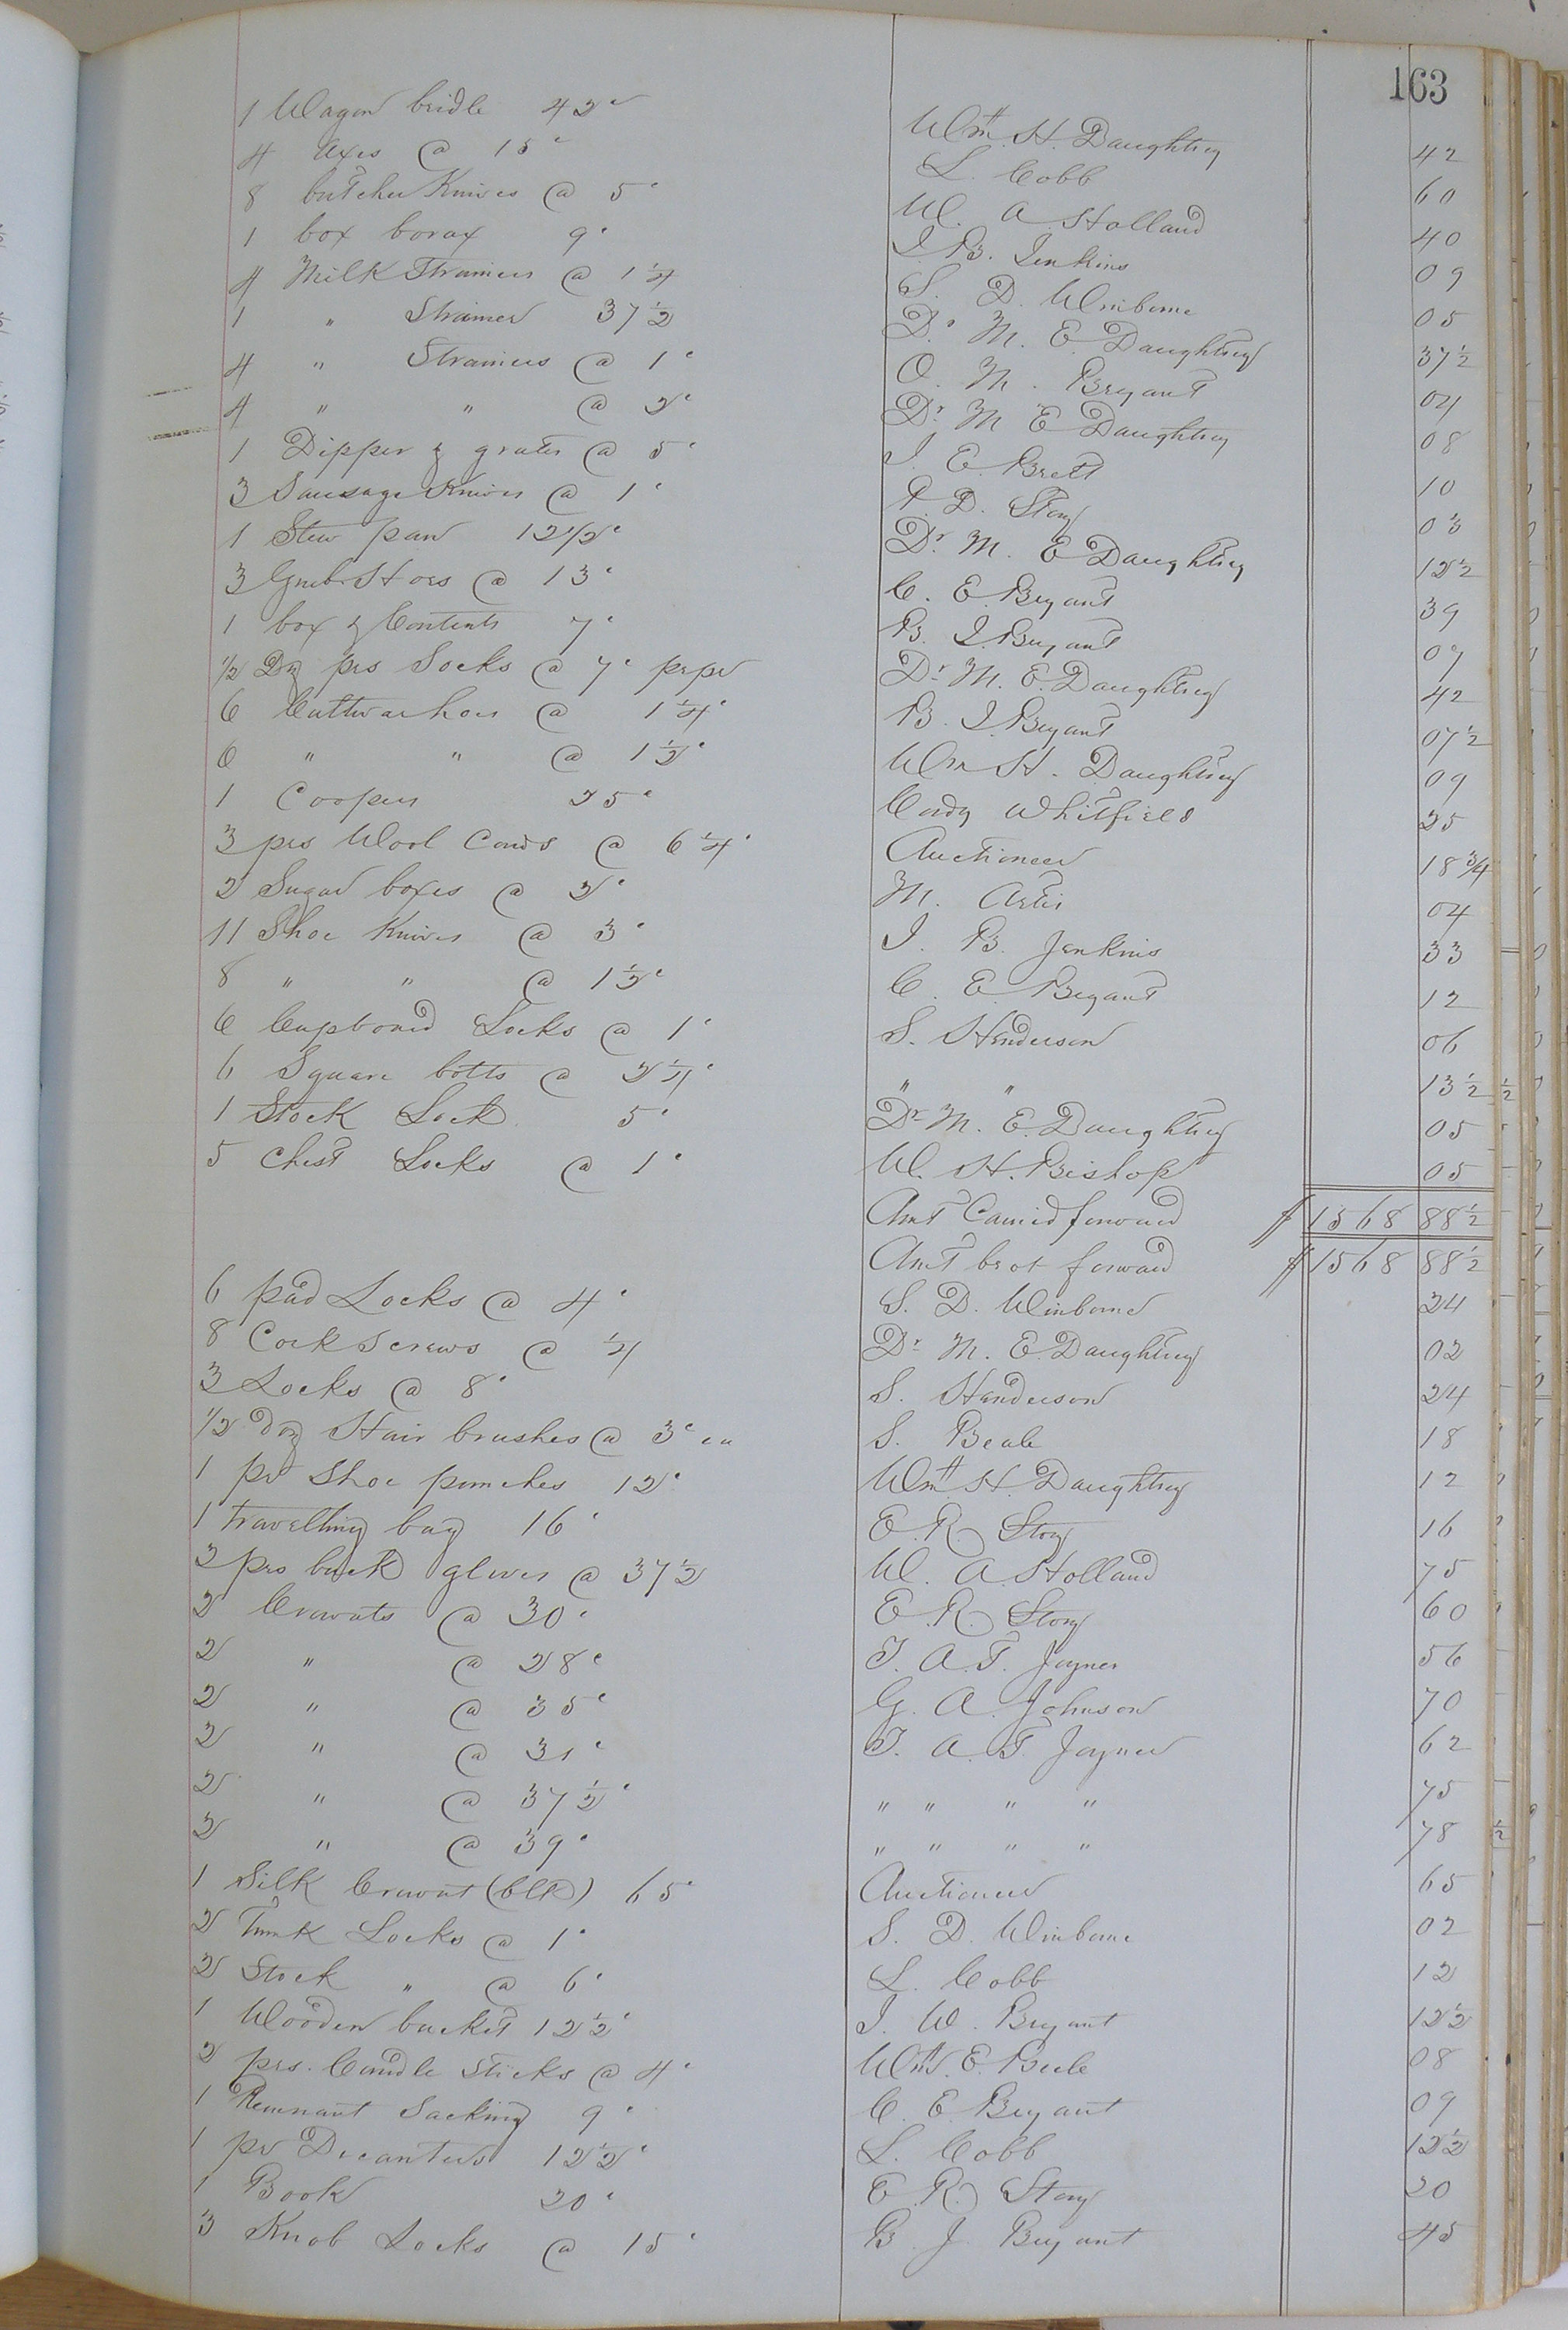 163
1 Wagon bridle 42c Wm H. Daughtrey 42
4 Axes @ 15c L. Cobb 60
8 butcher Knives @ 5c W. A. Holland 40
1 box borax 9c J. B. Jenkins 09
4 Milk Strainers @ 1 1/4 S. D. Winborne 05
1 " Strainer 37 1/2 Dr. M. E. Daughtrey 37 1/2
4 " Strainers @ 1c O. M. Bryant 04
4 " " @ 2c Dr. M. E. Daughtrey 08
1 Dipper & grater @ 5c J. E. Brett 10
3 Sausage Knives @ 1c D. Story 03
1 Stew pan 12 1/2c Dr. M. E. Daughtrey 12 1/2
3 Grub Hoes @ 13c C. E. Bryant 39
1 box & Contents 7c B. J. Bryant 07
1/2 Dz prs Socks @ 7c pr pr Dr. M. E. Daughtrey 42
6 @ 1 1/4c B. J. Bryant 07 1/2
6 " " @ 1 1/2c Wm H. Daughtrey 09
1 Coopers 25c Cordy Whitfield 25
3 prs Wool Cards @ 6 1/4c Auctioneer 18 3/4
2 Sugar boxes @ 2c M. Artis 04
11 Shoe Knives @ 3c J. B. Jenkins 33
8 " " @ 1 1/2c C. E. Bryant 12
6 Cupboard Locks @ 1c S. Henderson 06
6 Square bolts @ 2 1/4c " " 13 1/2
1 Stock Lock 5c Dr. M. E. Daughtrey 05
5 Chest Locks @ 1c W. H. Bishop 05
Amt Carried forward $1568 88 1/2
Amt brot forward $1568 88 1/2
6 pad Locks @ 4c S. D. Winborne 24
8 Cork Screws @ 1/4 Dr. M. E. Daughtrey 02
3 Locks @ 8c S. Henderson 24
1/2 doz Hair brushes @ 3c ea S. Beale 18
1 pr Shoe pinchers 12c Wm H. Daughtrey 12
1 travelling bag 16c E. R. Story 16
2 prs buck gloves @ 37 1/2 W. A. Holland 75
2 Cravats @ 30c E. R. Story 60
2 " @ 28c T. A. T. Joyner 56
2 " @ 35c G. A. Johnson 70
2 " @ 31c T. A. T. Joyner 62
2 " @ 37 1/2c " " " " 75
2 " @ 39c " " " " 78
1 Silk Cravat (blk) 65 Auctioneer 65
2 Trunk Locks @ 1c S. D. Winborne 02
2 Stock " @ 6c L. Cobb 12
1 Wooden bucket 12 1/2c J. W. Bryant 12 1/2
2 prs. Candle Sticks @ 4c Wm. E. Beale 08
1 Remnant Sacking 9c C. E. Bryant 09
1 pr Decanters 12 1/2c L. Cobb 12 1/2
1 Book 20c E. R. Story 20
3 Knob Locks @ 15c B. J. Bryant 45